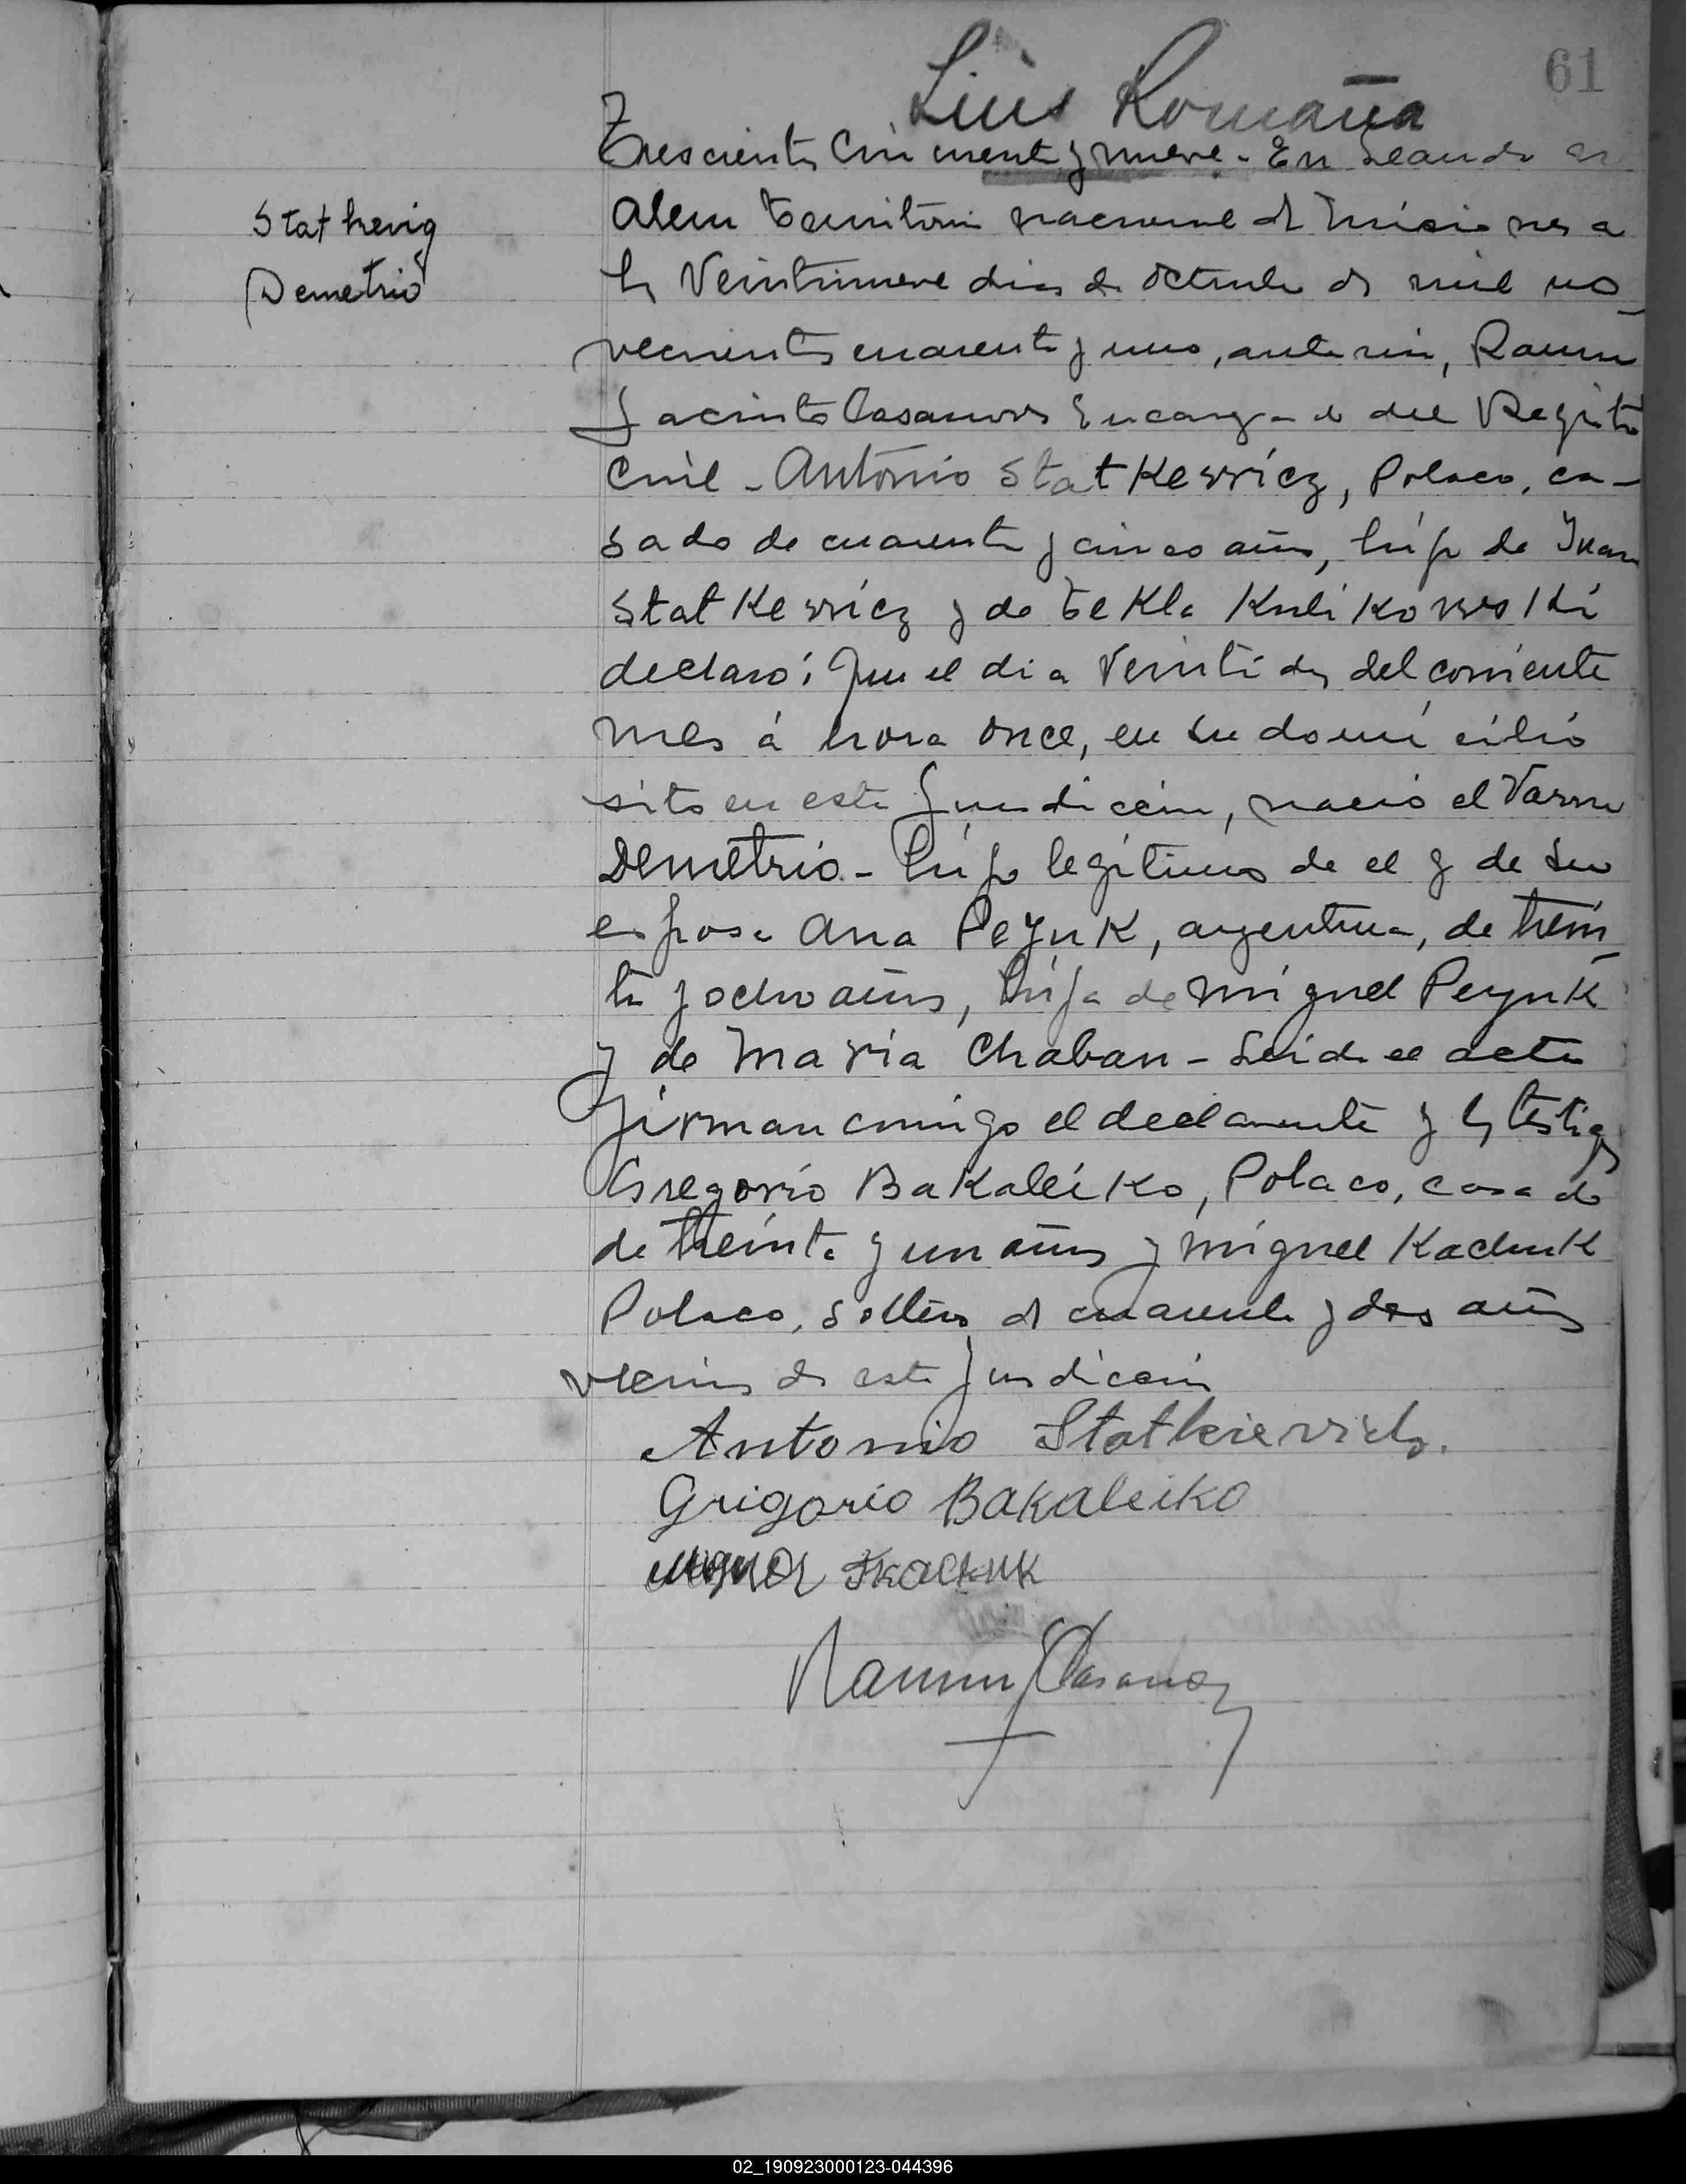 61
Luis Romaña
Trescientos Cincuenta y nueve. En Leandro N
Alem Territorio nacional de Misiones a
los Veintinueve dias de Octubre de mil no
vecientos cuarenta y uno, ante mi, Ramon
Jacinto Casanova Encargado del Registro
Civil - Antonio Statkewicz, Polaco, ca-
sado de cuarenta y cinco años, hijo de Juan
Statkewicz y de Tekla Kulikowski
declaró: Que el dia Veintidos del corriente
mes á hora once, en su domicilio
sito en esta Jurisdiccion, nació el Varon
Demetrio - hijo legitimo de el y de su
esposa Ana Peyuk, argentina, de trein
ta y ocho años, hija de Miguel Peyuk
y de Maria Chaban - Leida el acta
firman conmigo el declarante y los testigos
Gregorio Bakaleiko, Polaco, casado
de treinta y un años y Miguel Kachuk
Polaco, soltero de cuarenta y dos años
vecinos de esta Jurisdiccion
Antonio Statkievich.
Grigorio Bakaleiko
Miguel Tkachuk
Ramon J Casanova
Statkevig
Demetrio
02_190923000123-044396